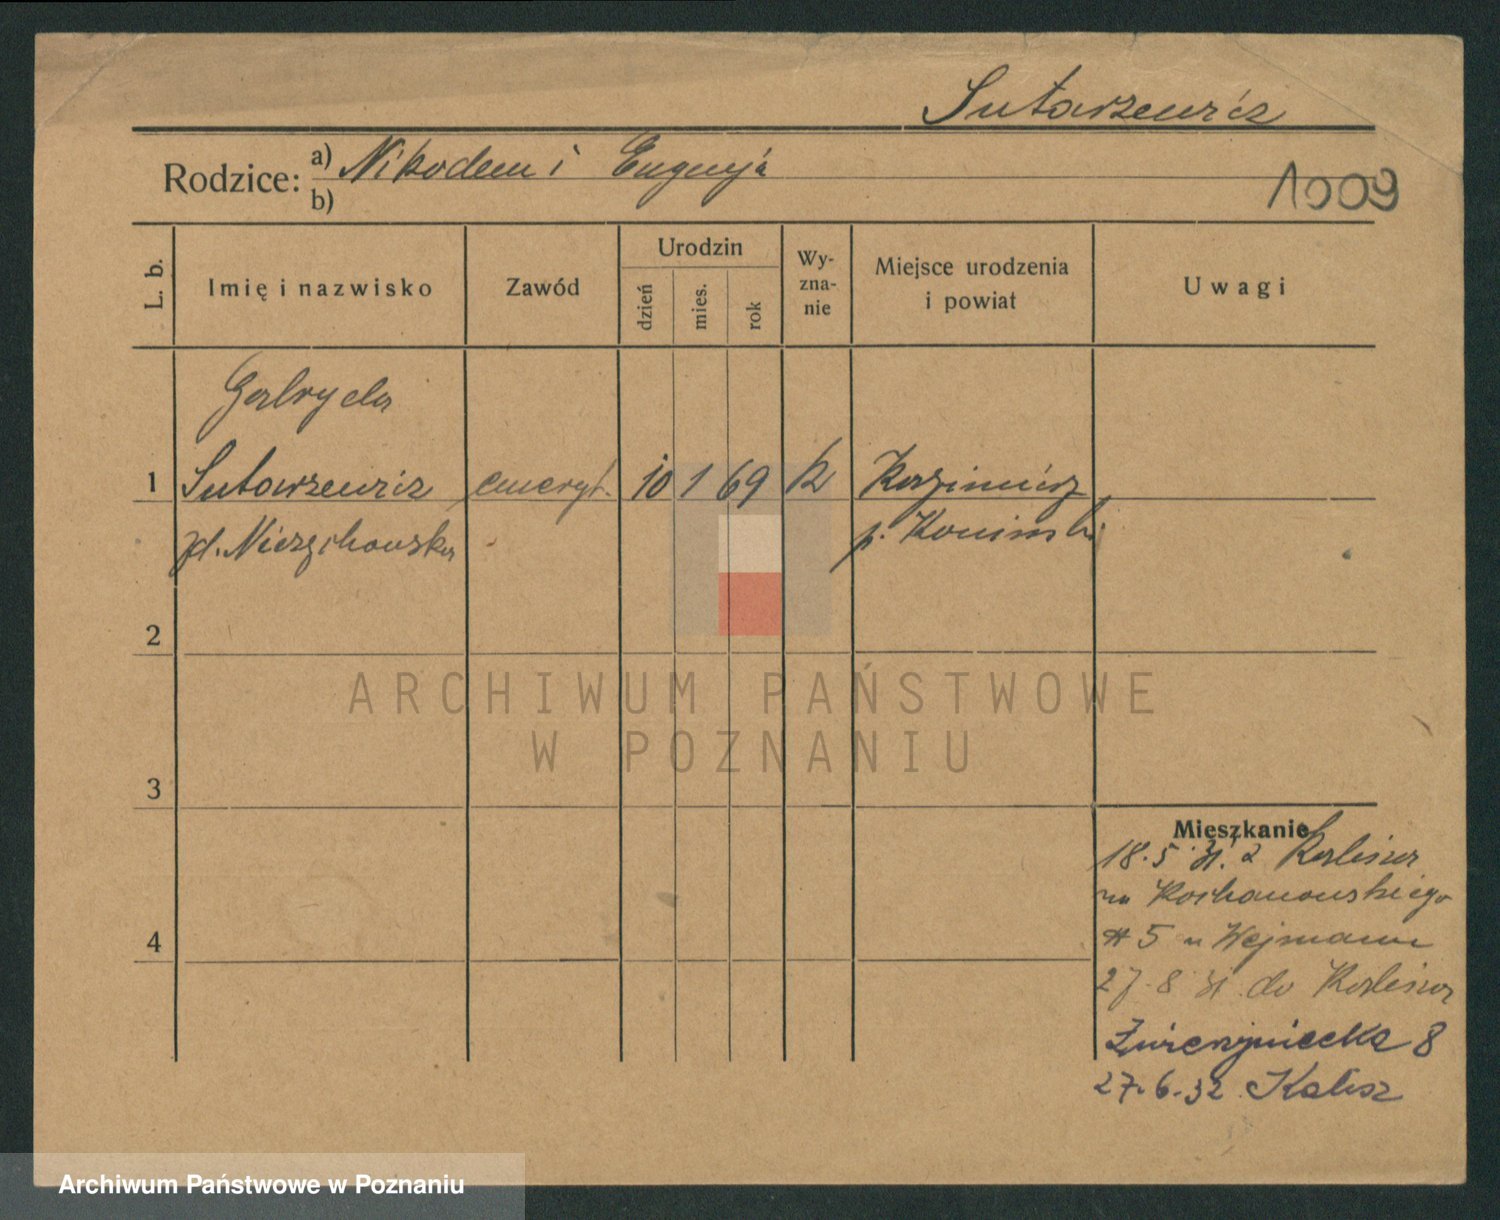 Sutarzewicz
Rodzice: a) Nikodem i Eugenja
b)
1009
L. b.
Imię i nazwisko
Zawód
Urodzin
dzień
mies.
rok
Wy-
zna-
nie
Miejsce urodzenia
i powiat
Uwagi
Gabryela
1 Sutarzewicz emeryt. 10 1 69 k Kazimierz
zd. Nierzychowska p. Koniński
2
3
4
Mieszkanie
18.5 31. z Kalisza
na Kochanowskiego
# 5 u Wejmann
27.8 31. do Kalisza
Zwierzyniecka 8
27.6.32 Kalisz
ARCHIWUM PAŃSTWOWE
W POZNANIU
Archiwum Państwowe w Poznaniu